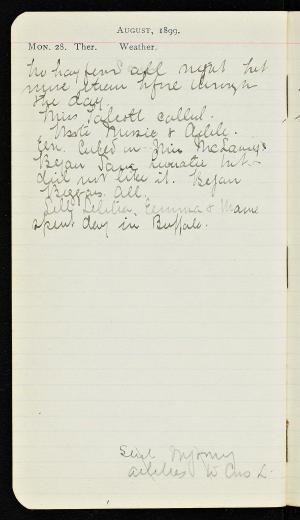 August, 1899.
Mon. 28. Ther. Weather.
No hayfever all night but
more than before through
the day.
Miss Talcott called.
Wrote Marie & Adele.
Even. Called on Miss McLarey's
Began Sane Lunatic but
did not like it. Began
Biggus. All.
Lelilia, Emma & Mame
spent day in Buffalo.
Sent my
articles to L.